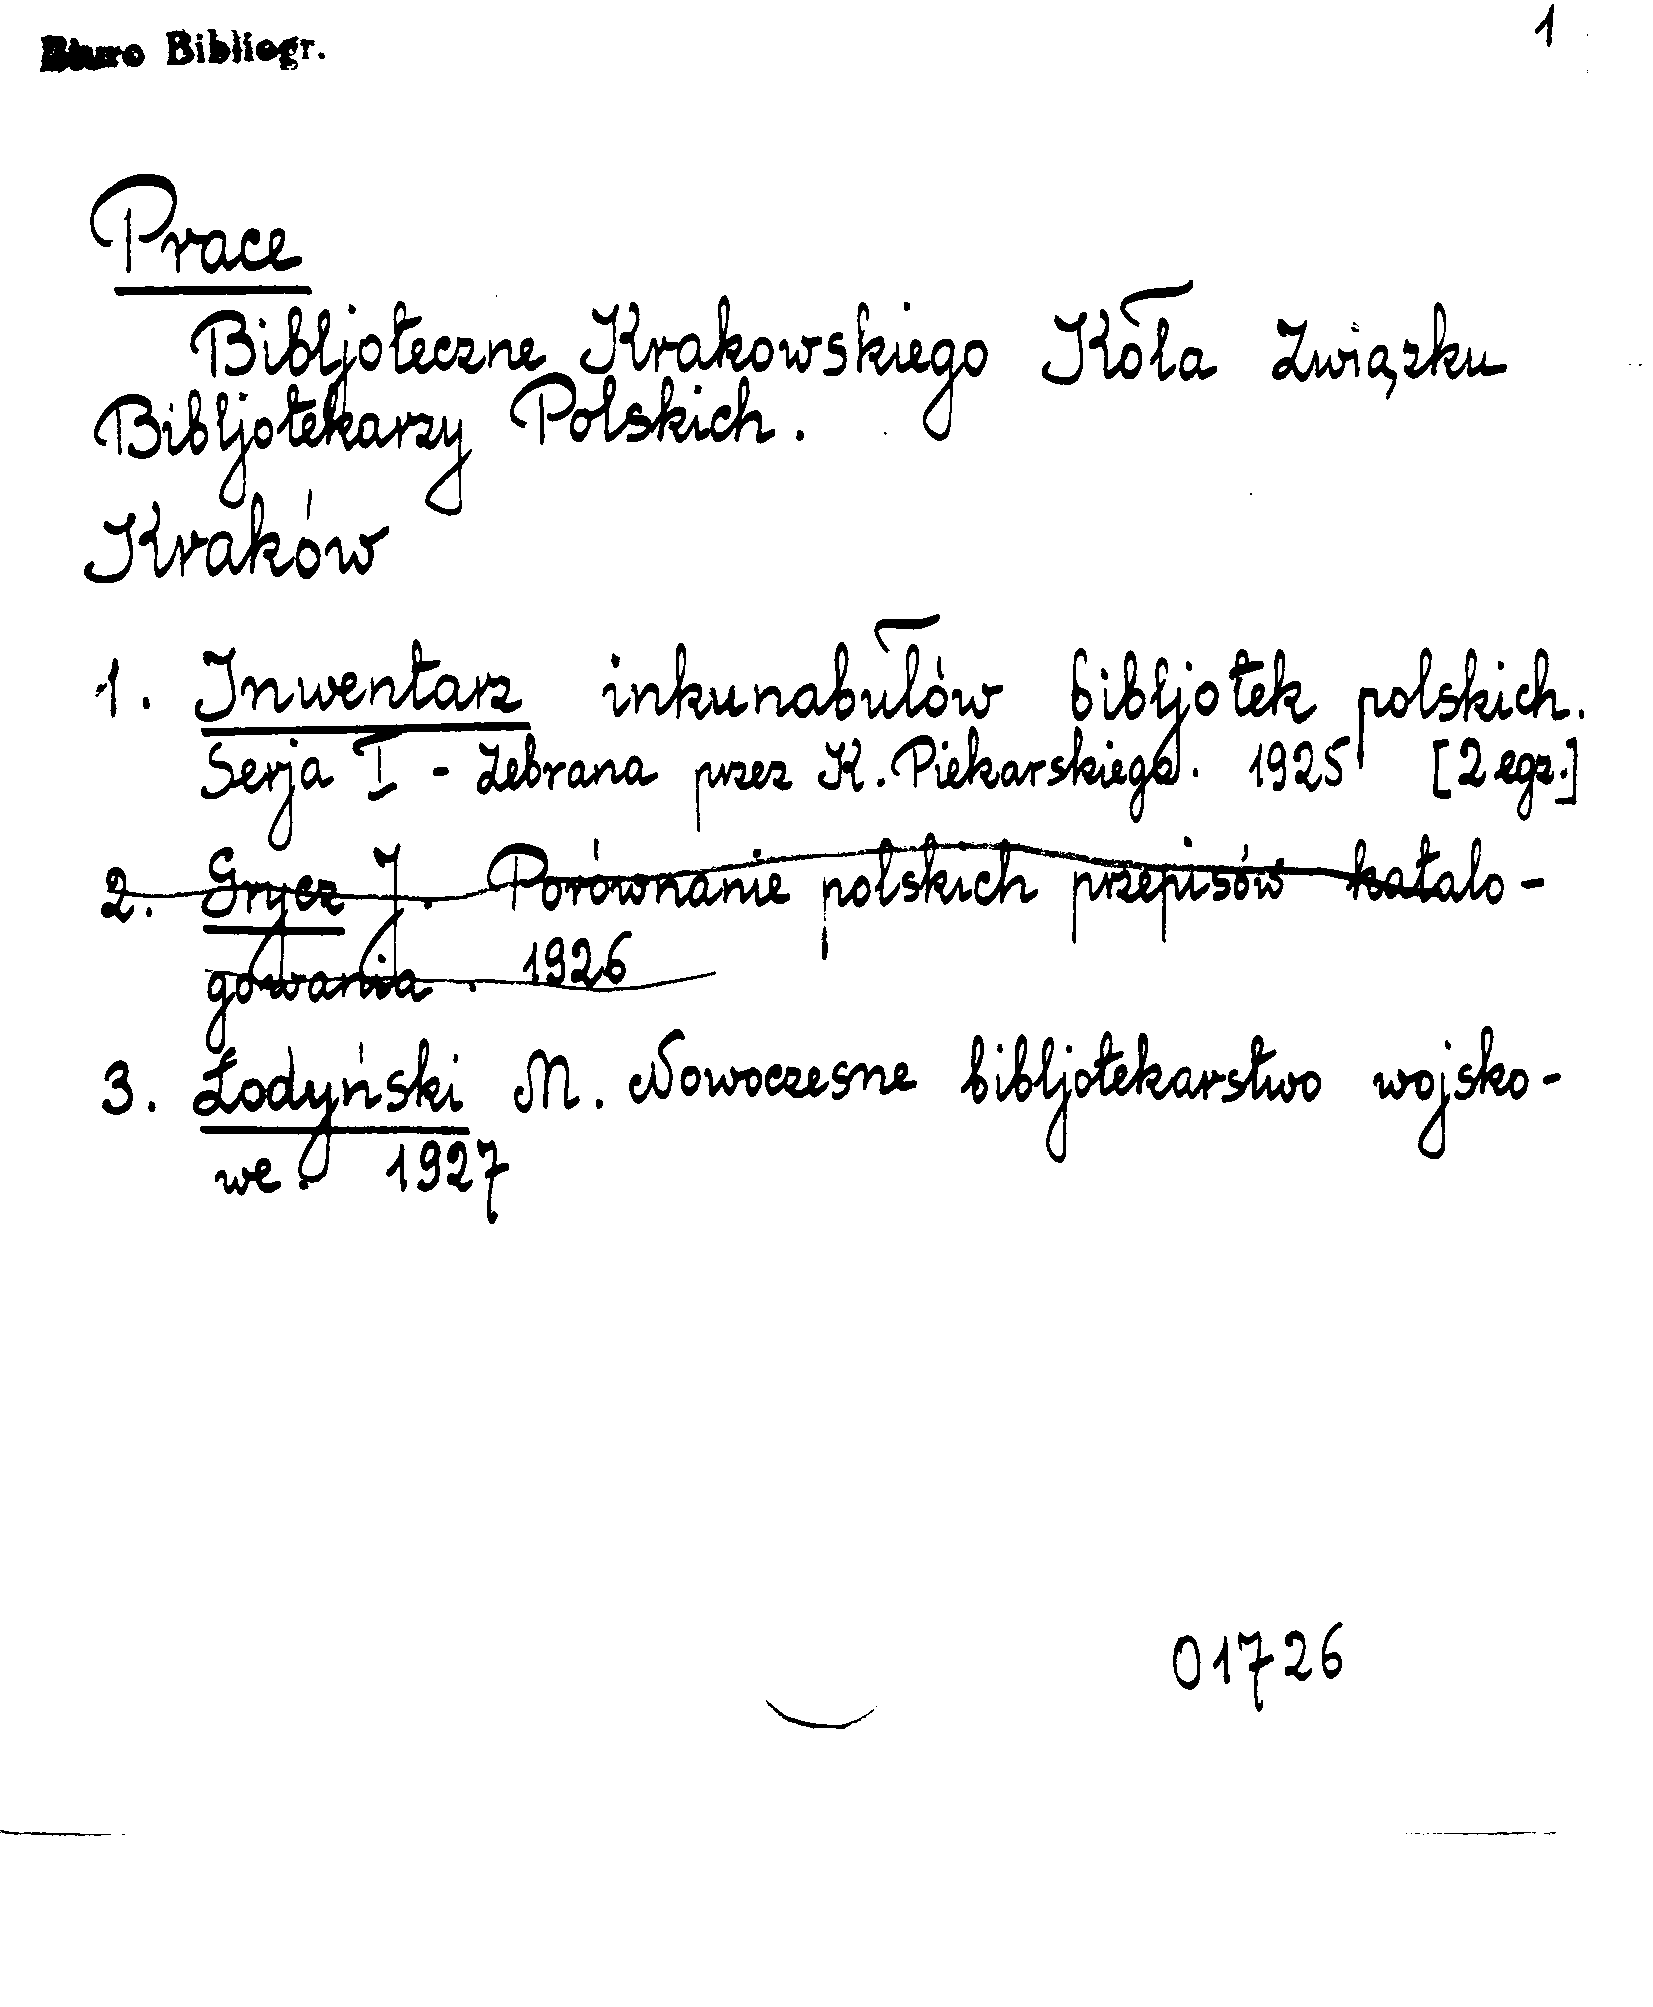 Biuro Bibliogr.
1
Prace
Bibljoteczne Krakowskiego Koła Związku
Bibljotekarzy Polskich.
Kraków
1. Inwentarz inkunabułów bibljotek polskich.
Serja I - Zebrana przez K. Piekarskiego. 1925 [2 egz.]
2. Grycz J. Porównanie polskich przepisów katalo-
gowania. 1926
3. Łodyński M. Nowoczesne bibljotekarstwo wojsko-
we. 1927
01726